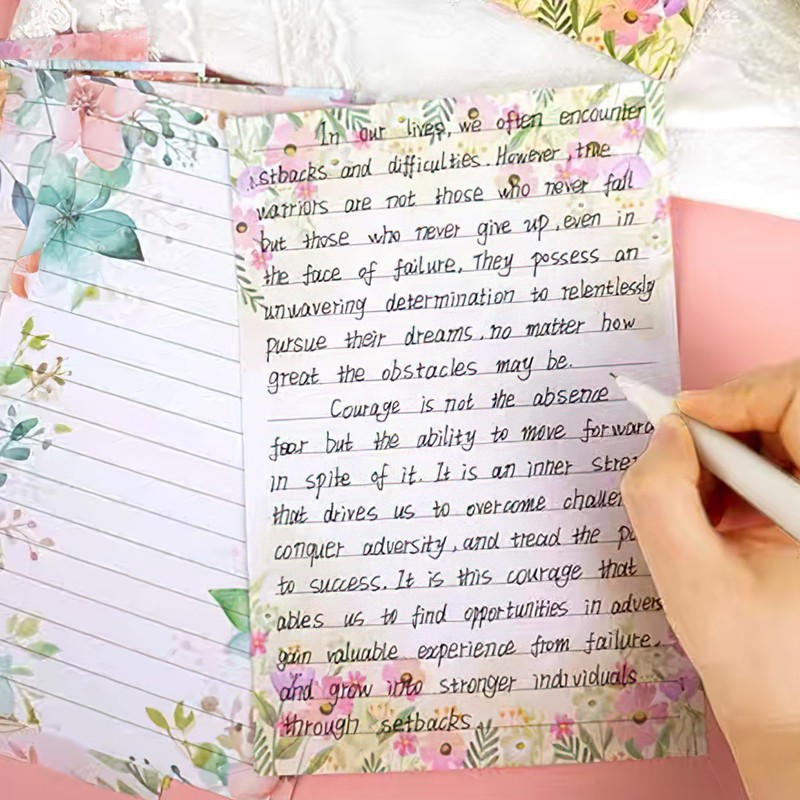 In our lives, we often encounter
stbacks and difficulties. However, true
warriors are not those who never fall
but those who never give up, even in
the face of failure. They possess an
unwavering determination to relentlessly
pursue their dreams, no matter how
great the obstacles may be.
Courage is not the absence
fear but the ability to move forward
in spite of it. It is an inner stre
that drives us to overcome challen
conquer adversity, and tread the pa
to success. It is this courage that
ables us to find opportunities in advers
gain valuable experience from failure,
and grow into stronger individuals
through setbacks.